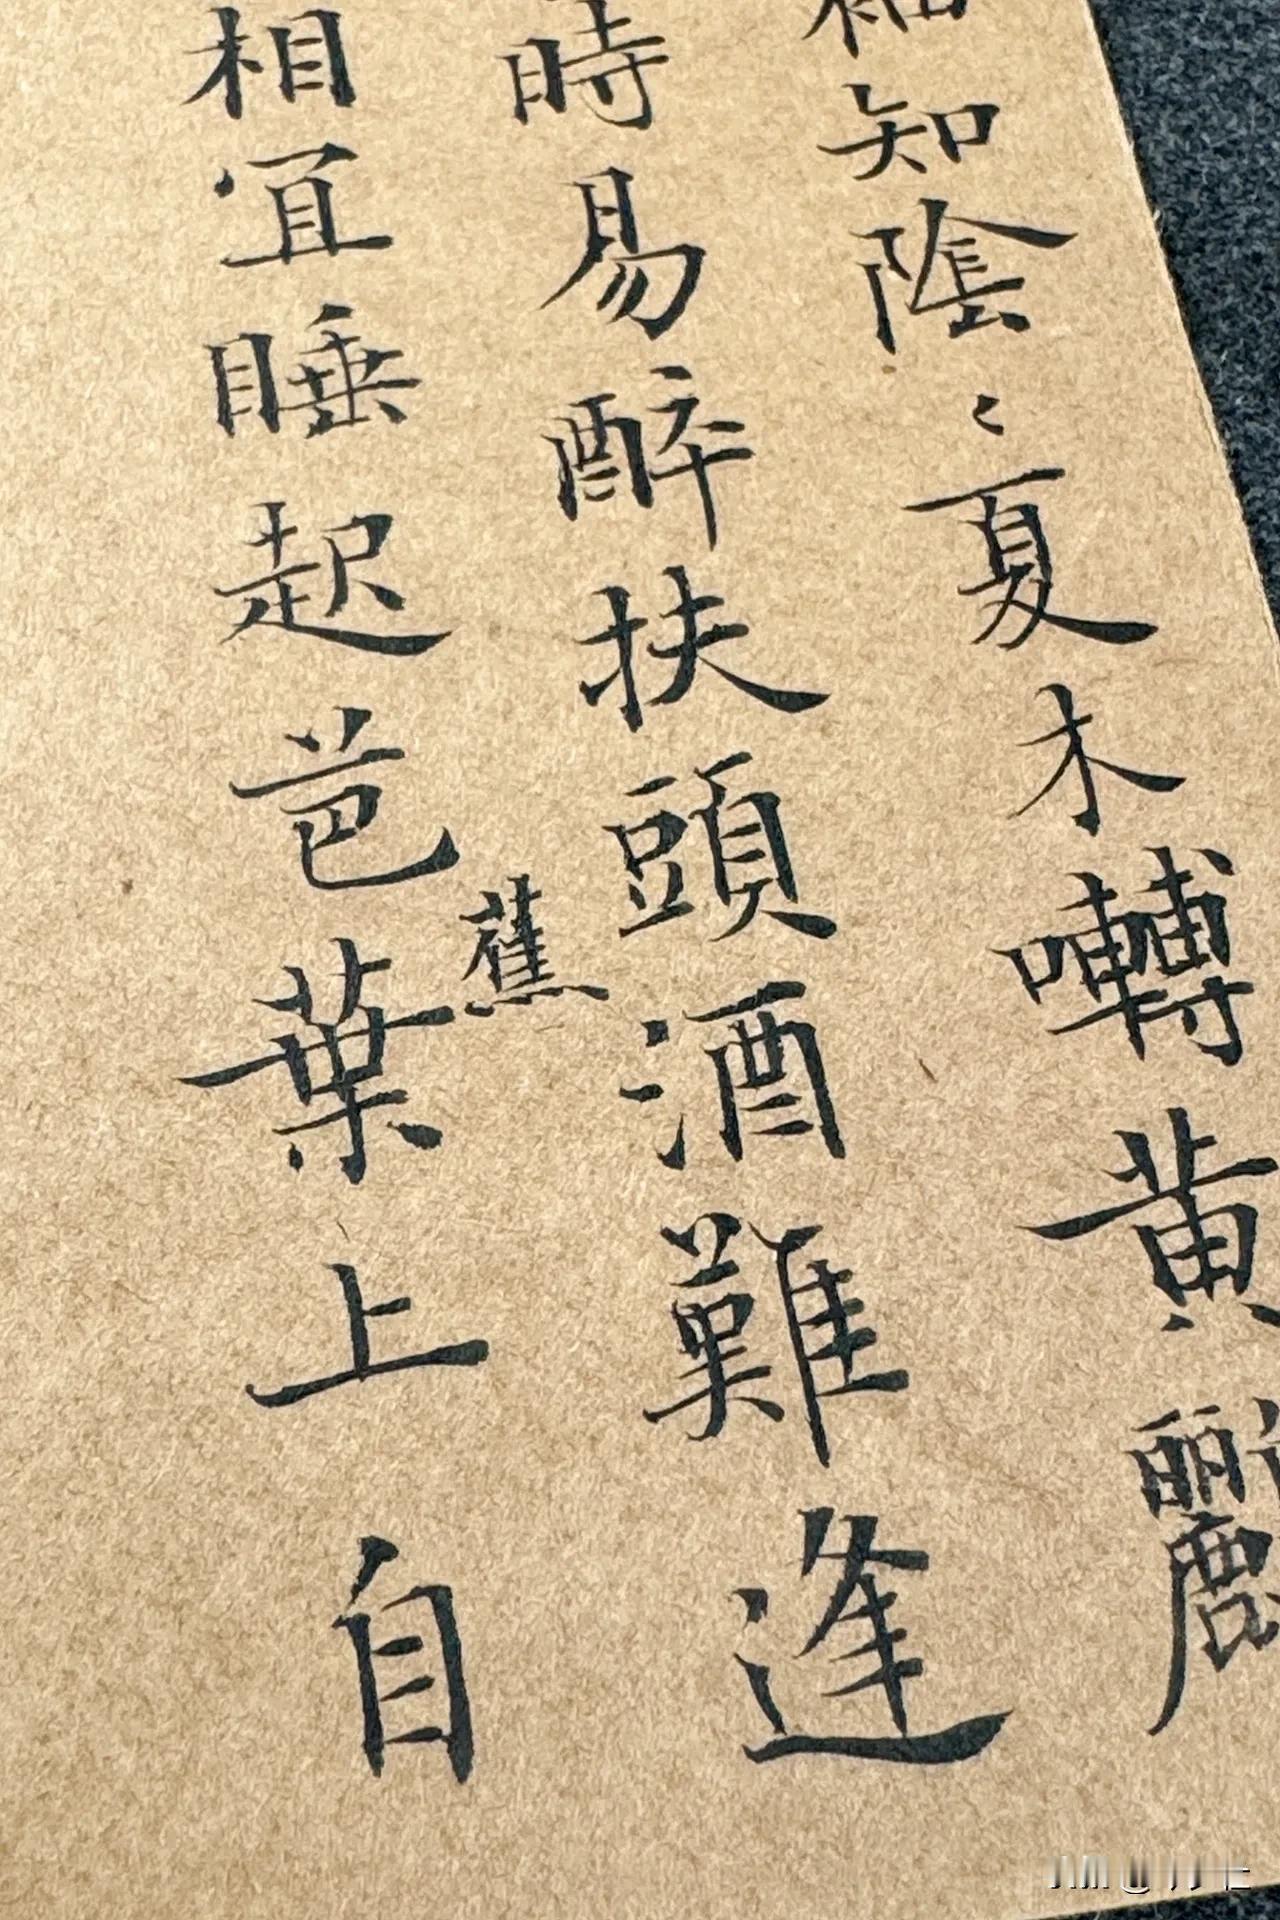 知陰〻夏木囀黄鸝
時易醉扶頭酒難逢
相宜睡起芭蕉葉上自